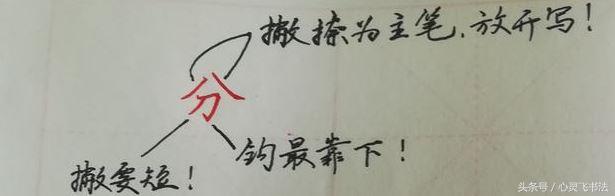 撇捺为主笔,放开写!
分
钩最靠下!
撇要短!
头条号/心灵飞书法